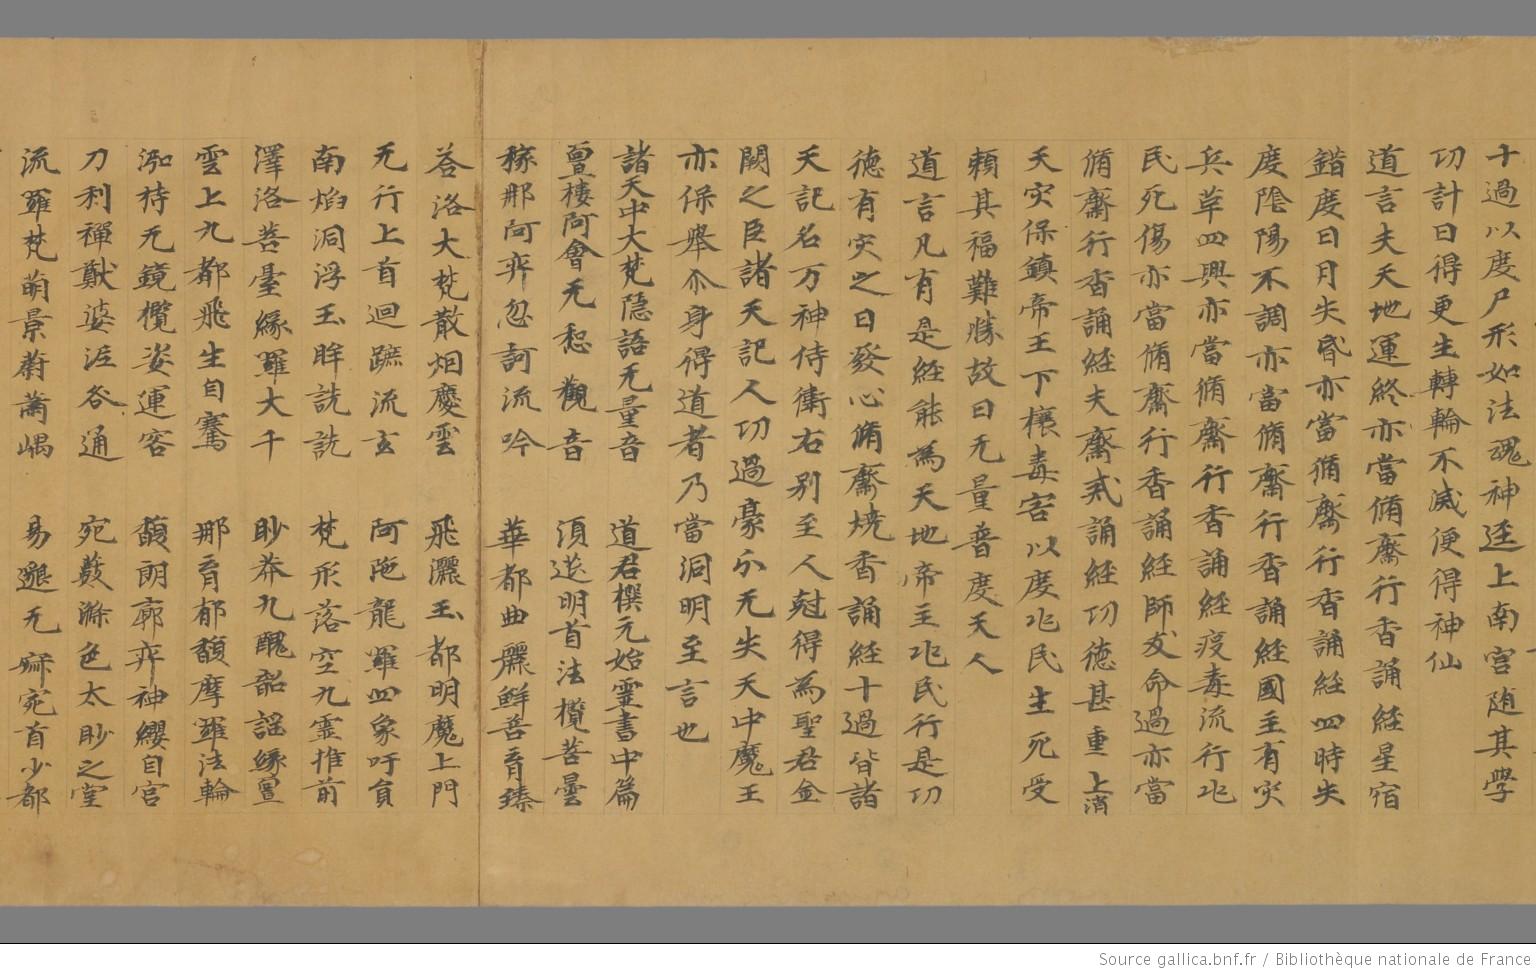 十過以度尸形如法魂神逕上南宫随其學
切計日得更生轉輪不滅便得神仙
道言夫天地運終亦當脩齋行香誦經星宿
錯度日月失昬亦當脩齋行香誦經四時失
度陰陽不調亦當脩齋行香誦經國主有灾
兵革四興亦當脩齋行香誦經疫毒流行兆
民死傷亦當脩齋行香誦經師友命過亦當
脩齋行香誦經夫齋戒誦經功德甚重上消
天灾保鎮帝王下禳毒害以度兆民生死受
頼其福難勝故曰无量普度天人
道言凡有是經能為天地帝主兆民行是功
德有灾之日發心脩齋燒香誦經十過皆諸
天記名万神侍衛右别至人尅得為聖君金
闕之臣諸天記人功過豪分无失天中魔王
亦保舉尒身得道者乃當洞明至言也
諸天中大梵隠語无量音 道君撰元始靈書中篇
亶樓阿會无惒觀音 湏𨒬明首法欖菩曇
稼那阿弈忽訶流吟 華都曲麗鮮菩育臻
荅洛大梵散烟慶雲 飛灑玉都明魔上門
无行上首迴蹠流玄 阿陁龍羅四象吁貟
南焰洞浮玉眸詵詵 梵形落空九靈推前
澤洛菩臺緣羅大千 眇莽九醜韶謡緣亶
雲上九都飛生自騫 那育郁馥摩羅法輪
㴃持无鏡欖姿運容 馥朗廓弈神纓自宫
刀利禪猷婆泟咨通 宛藪滌色太眇之堂
流羅梵萌景蔚蕭嵎 易邈无寂宛首少都
Source gallica.bnf.fr / Bibliothèque nationale de France